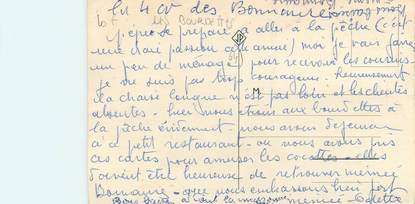 en 4 CV des Bonneure
les Bourdettes
pepe se prepare a aller à la pêche (c'est
une vraie passion cette année) moi je vais faire
un peu de ménage pour recevoir les cousins
je ne suis pas trop courageuse. heureusement
la chaise longue n'est pas loin et les clientes
absentes. hier nous étions aux bourdettes à
la pêche évidemment - nous avons déjeuner
à petit restaurant - ou nous avons pris
ces cartes pour amuser les cocottes - elles
doivent être heureuse de retrouver mémée
nous embrassons bien fort
Bons baisers à tout la maisonnée